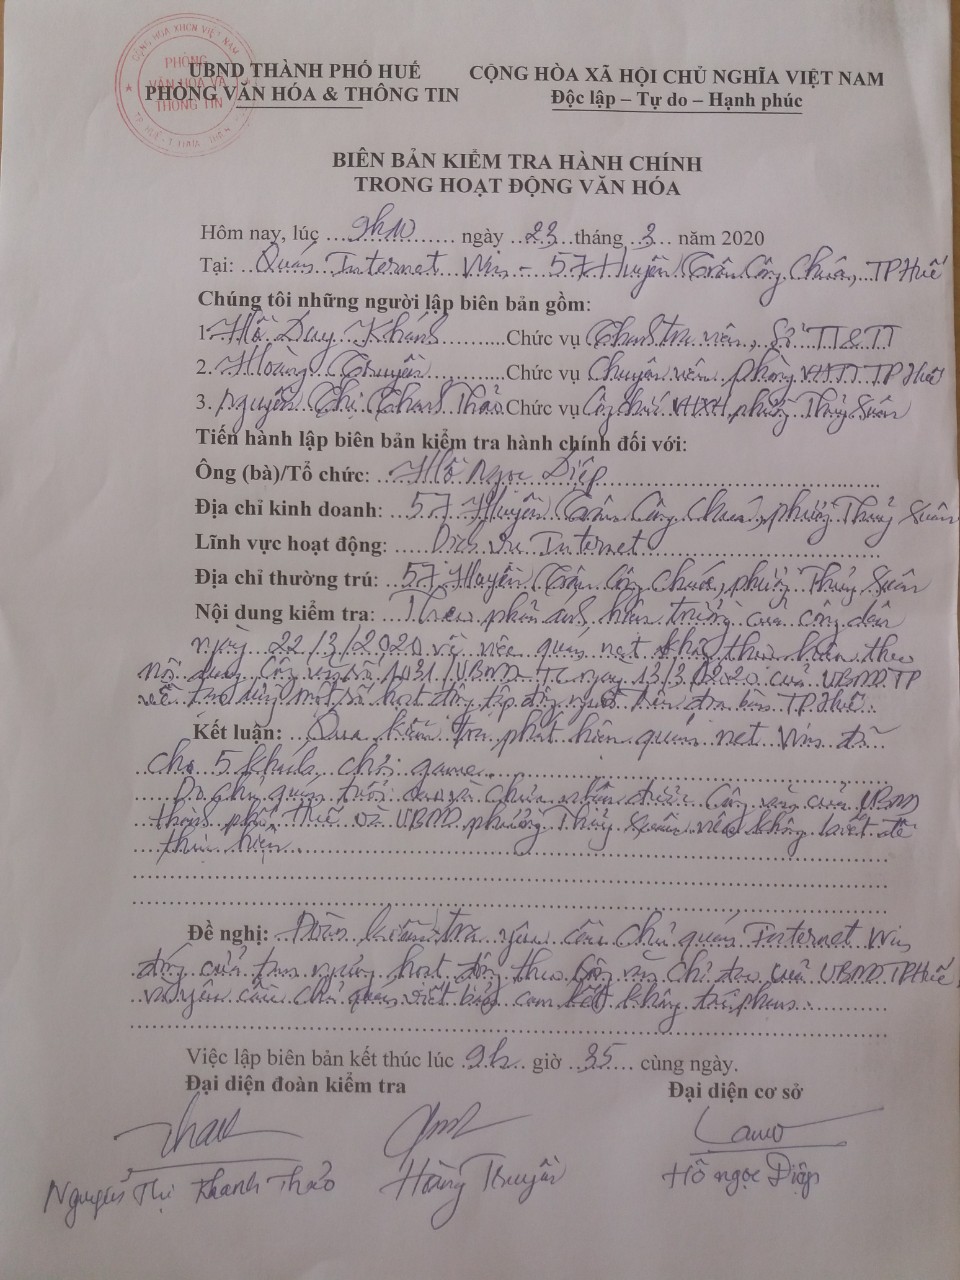 CỘNG HÒA XHCN VIỆT NAM
PHÒNG
VĂN HÓA VÀ
THÔNG TIN
UBND THÀNH PHỐ HUẾ
PHÒNG VĂN HÓA & THÔNG TIN
CỘNG HÒA XÃ HỘI CHỦ NGHĨA VIỆT NAM
Độc lập – Tự do – Hạnh phúc
BIÊN BẢN KIỂM TRA HÀNH CHÍNH
TRONG HOẠT ĐỘNG VĂN HÓA
Hôm nay, lúc 9h10 ngày 23 tháng 3 năm 2020
Tại: Quán Internet Win - 57 Huyền Trân Công Chúa, TP Huế
Chúng tôi những người lập biên bản gồm:
1. Hồ Duy Khánh Chức vụ Thanh tra viên, Sở TT&TT
2. Hoàng Truyền Chức vụ Chuyên viên phòng VHTT TP Huế
3. Nguyễn Thị Thanh Thảo Chức vụ Công chức VHXH phường Thủy Xuân
Tiến hành lập biên bản kiểm tra hành chính đối với:
Ông (bà)/Tổ chức: Hồ Ngọc Diệp
Địa chỉ kinh doanh: 57 Huyền Trân Công Chúa, phường Thủy Xuân
Lĩnh vực hoạt động: Dịch vụ Internet
Địa chỉ thường trú: 57 Huyền Trân Công Chúa, phường Thủy Xuân
Nội dung kiểm tra: Theo phản ánh hiện trường của công dân
ngày 22/3/2020 về việc quán net không thực hiện theo
nội dung Công văn số 1031/UBND ngày 13/3/2020 của UBND TP
về tạm dừng một số hoạt động tập đông người trên địa bàn TP Huế.
Kết luận: Qua kiểm tra phát hiện quán net Win đã
cho 5 khách chơi game.
Do chủ quán chưa nhận được Công văn của UBND
thành phố Huế và UBND phường Thủy Xuân nên không biết để
thực hiện.
Đề nghị: Đoàn kiểm tra yêu cầu chủ quán Internet Win
đóng cửa tạm ngừng hoạt động theo Công văn chỉ đạo của UBND TP Huế
và yêu cầu chủ quán viết bảng cam kết không tái phạm.
Việc lập biên bản kết thúc lúc 9h giờ 35 cùng ngày.
Đại diện đoàn kiểm tra
Đại diện cơ sở
Nguyễn Thị Thanh Thảo
Hoàng Truyền
Hồ Ngọc Diệp